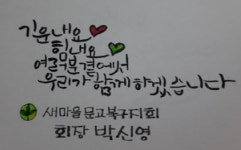 기운내요
힘내요
여러분곁에서
우리가 함께 하겠습니다
새마을문고북구지회
회장 박신영